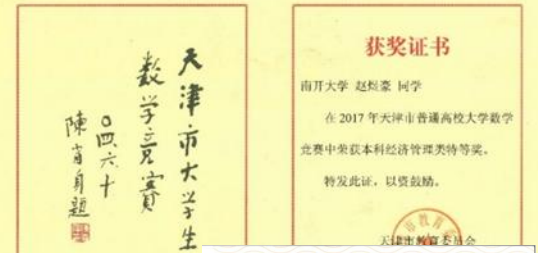 天津市大学生
数学竞賽
〇四六十
陳省身題
获奖证书
南开大学 同学
在 2017 年天津市普通高校大学数学
竞赛中荣获本科经济管理类特等奖。
特发此证，以资鼓励。
天津市教育委员会